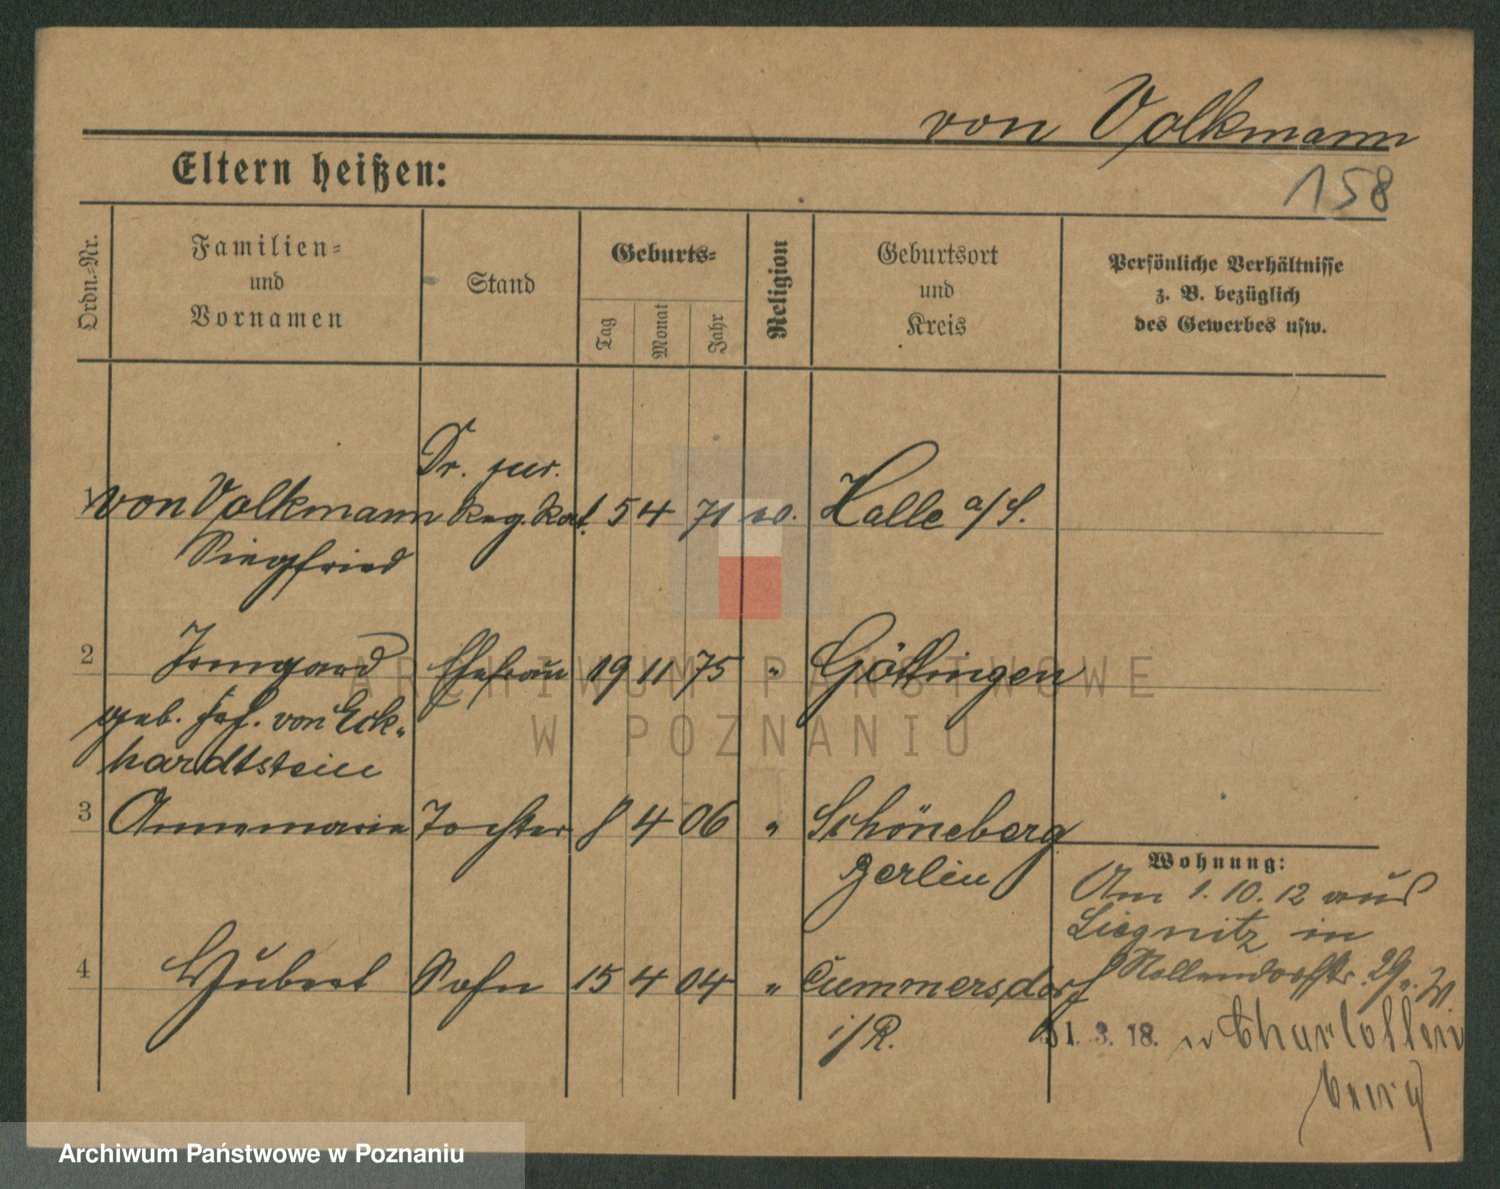 von Volkmann
158
Eltern heißen:
Ordn.-Nr.
Familien-
und
Vornamen
Stand
Geburts-
Tag
Monat
Jahr
Religion
Geburtsort
und
Kreis
Persönliche Verhältnisse
z. B. bezüglich
des Gewerbes usw.
Dr. jur.
1 von Volkmann Reg. Rat. 5 4 71 Halle a/S.
Siegfried
2 Irmgard Ehefrau 19 11 75 " Göttingen
geb. von Eck-
hardtstein
3 Annemarie Tochter 8 4 06 " Schöneberg
Berlin
4 Hubert Sohn 15 4 04 " Cummersdorf
i/R.
Wohnung:
Am 1. 10. 12 aus
Liegnitz in
Nollendorfstr. 29.
31. 3. 18. n Charlotten
burg
ARCHIWUM PAŃSTWOWE
W POZNANIU
Archiwum Państwowe w Poznaniu